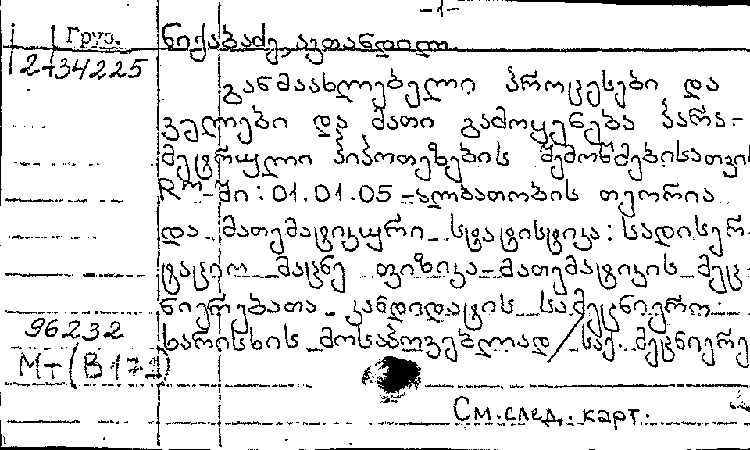 -1-
Груз. ნიქაბაძე, ავთანდილ
2-34225
განმაახლებელი პროცესები და
ველები და მათი გამოყენება პარა-
მეტრული ჰიპოთეზების შემოწმებისათვის
Rᵐ-ში: 01.01.05 - ალბათობის თეორია
და მათემატიკური სტატისტიკა: სადისერ-
ტაციო მაცნე ფიზიკა-მათემატიკის მეც-
ნიერებათა კანდიდატის სამეცნიერო
96232 ხარისხის მოსაპოვებლად / საქ. მეცნიერე
Мт (В171)
См. след. карт.